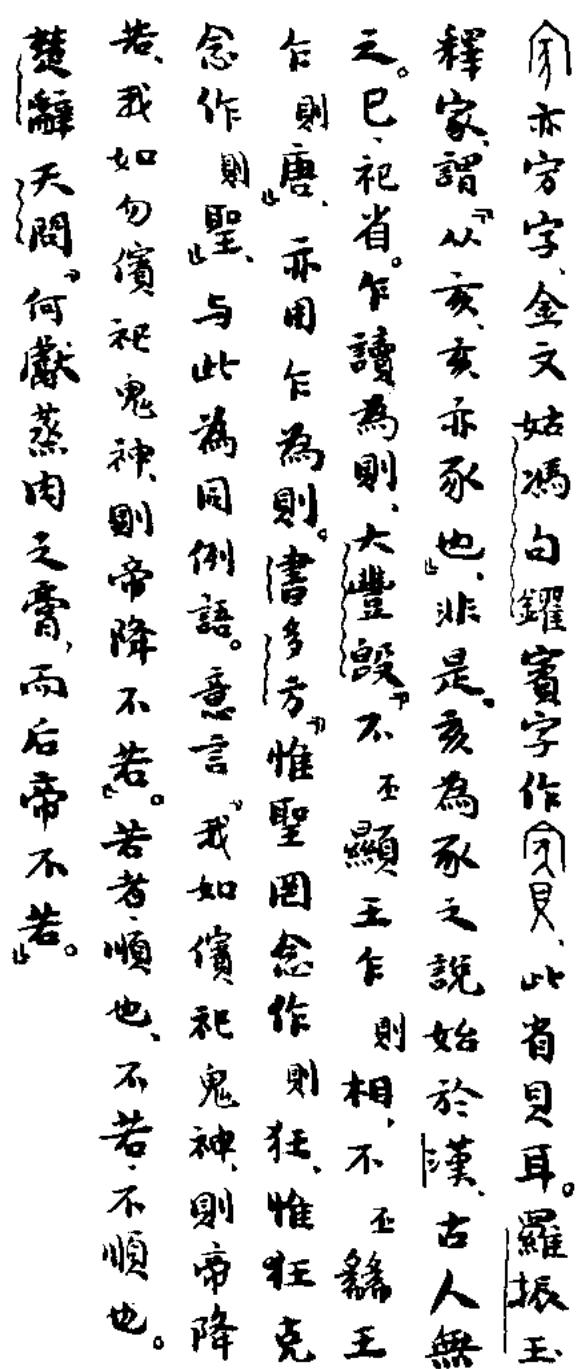 亦字、金文姑馮句鑃賓字作、此省貝耳。羅振玉
釋家、謂「从亥、亥亦豕也」、非是。亥為豕之說始於漢、古人無
之。巳、祀省。乍讀為則、大豐𣪘「不丕顯王乍則相、不丕王
乍則唐」、亦用乍為則。書多方「惟聖罔念作則狂、惟狂克
念作則聖」、与此為同例語。意言「我如儐祀鬼神、則帝降
若、我如勿儐祀鬼神、則帝降不若」。若者、順也、不若、不順也。
楚辭天問「何獻蒸肉之膏、而后帝不若」。